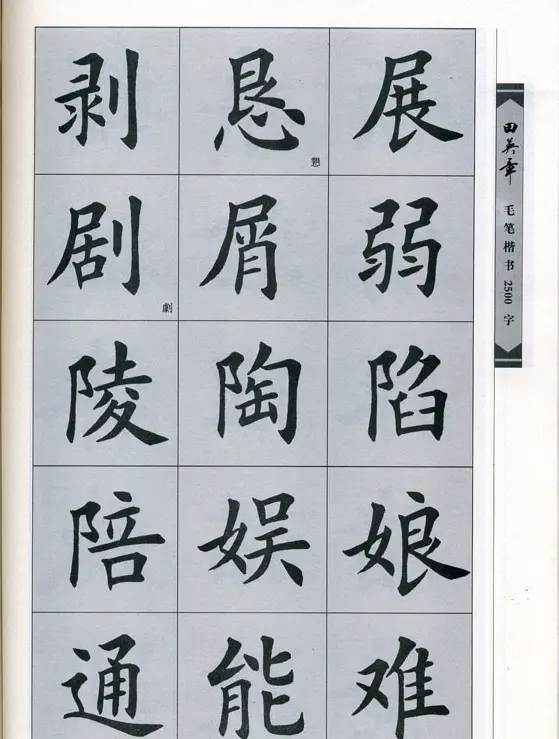 剥 恳 展
懇
剧 屑 弱
劇
陵 陶 陷
陪 娱 娘
通 能 难
田英章
毛笔楷书2500字